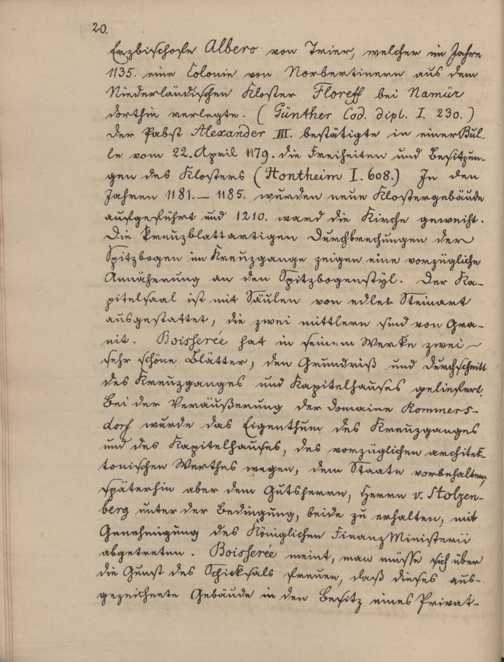 20.
Erzbischofe Albero von Trier, welcher im Jahre
1135. eine Colonie von Norbertinern aus dem
Niederländischen Kloster Floreff bei Namür
dorthin verlegte. (Günther Cod. dipl. I. 230.)
Der Pabst Alexander III. bestätigte in einer Bul-
le vom 22. April 1179. die Freiheiten und Besitzun-
gen des Klosters (Hontheim I. 608.) In den
Jahren 1181. — 1185. wurden neue Klostergebäude
aufgeführt und 1210. ward die Kirche geweiht.
Die kreuzblattartigen Durchbrechungen der
Spitzbogen im Kreuzgange zeigen eine vorzügliche
Annäherung an den Spitzbogenstyl. Der Ka-
pitelsaal ist mit Säulen von edler Steinart
ausgestattet, die zwei mittlern sind von Gra-
nit. Boisserée hat in seinem Werke zwei
sehr schöne Blätter, den Grundriß und Durchschnitt
des Kreuzganges und Kapitelhauses geliefert.
Bei der Veräußerung der Domaine Rommers-
dorf wurde das Eigenthum des Kreuzganges
und des Kapitelhauses, des vorzüglichen architek-
tonischen Werthes wegen, dem Staate vorbehalten,
späterhin aber dem Gutsherrn, Herrn v. Stolzen-
berg unter der Bedingung, beide zu erhalten, mit
Genehmigung des Königlichen Finanz Ministerii
abgetreten. Boisserée meint, man müsse sich über
die Gunst des Schicksals freuen, daß dieses aus-
gezeichnete Gebäude in den Besitz eines Privat-